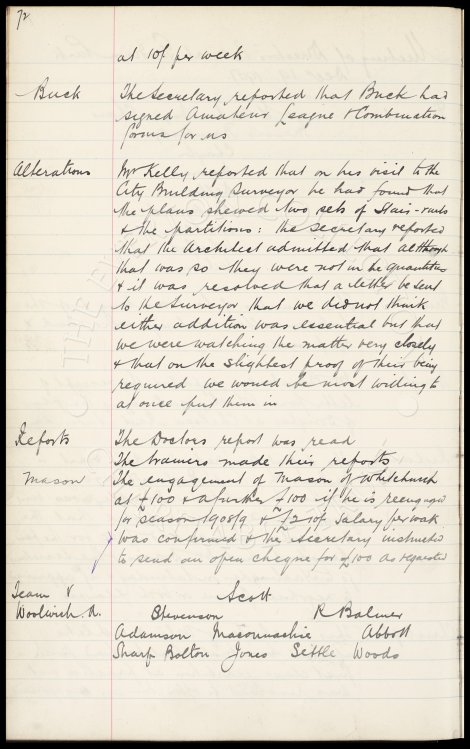 72
at 10/ per week
Buck The Secretary reported that Buck had
signed Amateur League & Combination
forms for us
Alterations Mr Kelly reported that on his visit to the
City Building Surveyor he had found that
the plans shewed two sets of Stair-rails
& the partitions: the secretary reported
that the Architect admitted that although
that was so they were not in the quantities
& it was resolved that a letter be sent
to the Surveyor that we did not think
either addition was essential but that
we were watching the matter very closely
& that on the slightest proof of their being
required we would be most willing to
at once put them in
Reports The Doctors report was read
The trainers made their reports
Mason The engagement of Mason of Whitchurch
at £100 & a further £100 if he is reengaged
for season 1908/9 & £2 10/ salary per week
was confirmed & the Secretary instructed
to send an open cheque for £100 as requested
Team v Scott
Woolwich A. Stevenson R Balmer
Adamson Maconnachie Abbott
Sharp Bolton Jones Settle Woods